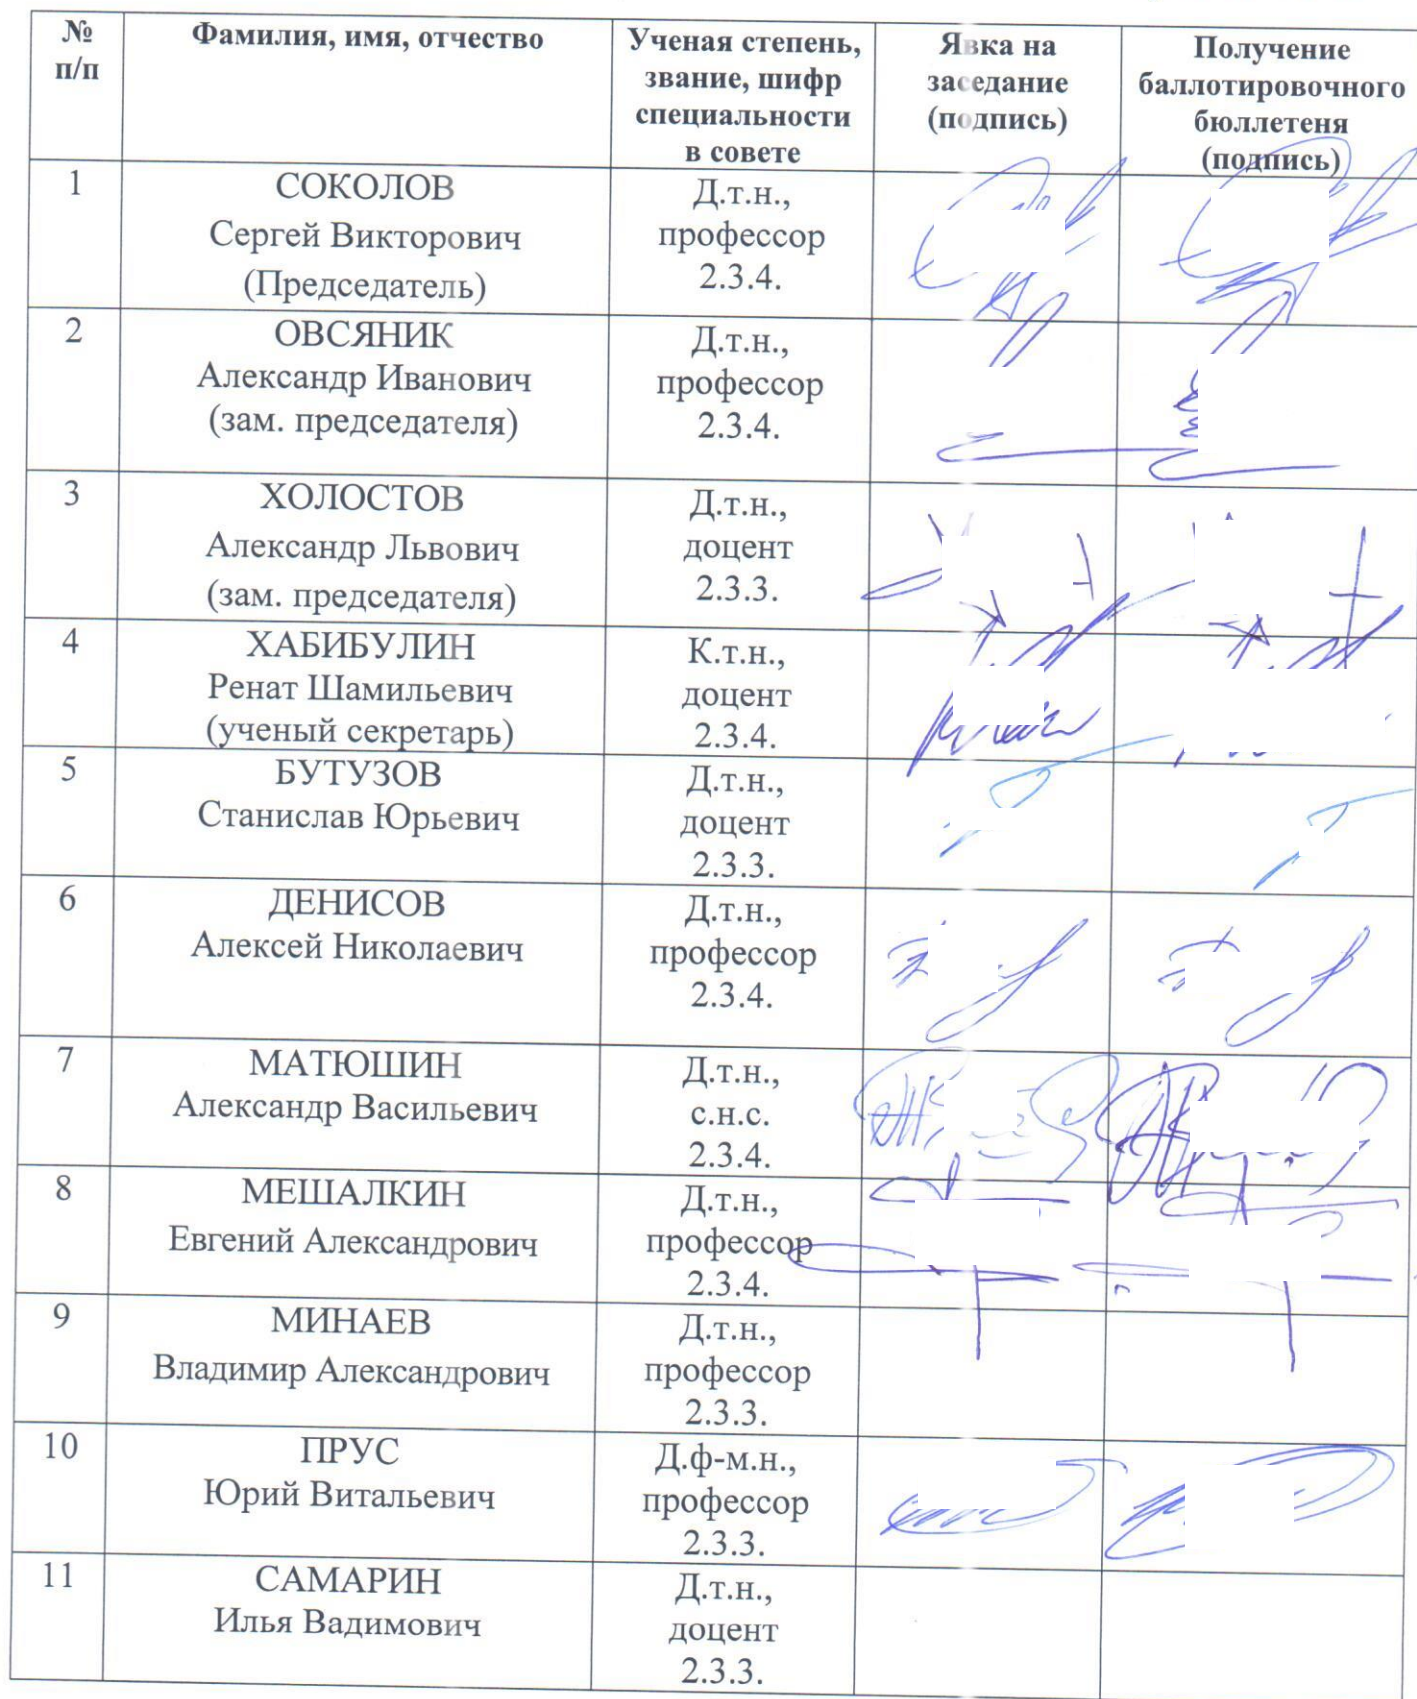 №
п/п
Фамилия, имя, отчество
Ученая степень,
звание, шифр
специальности
в совете
Явка на
заседание
(подпись)
Получение
баллотировочного
бюллетеня
(подпись)
1
СОКОЛОВ
Сергей Викторович
(Председатель)
Д.т.н.,
профессор
2.3.4.
2
ОВСЯНИК
Александр Иванович
(зам. председателя)
Д.т.н.,
профессор
2.3.4.
3
ХОЛОСТОВ
Александр Львович
(зам. председателя)
Д.т.н.,
доцент
2.3.3.
4
ХАБИБУЛИН
Ренат Шамильевич
(ученый секретарь)
К.т.н.,
доцент
2.3.4.
5
БУТУЗОВ
Станислав Юрьевич
Д.т.н.,
доцент
2.3.3.
6
ДЕНИСОВ
Алексей Николаевич
Д.т.н.,
профессор
2.3.4.
7
МАТЮШИН
Александр Васильевич
Д.т.н.,
с.н.с.
2.3.4.
8
МЕШАЛКИН
Евгений Александрович
Д.т.н.,
профессор
2.3.4.
9
МИНАЕВ
Владимир Александрович
Д.т.н.,
профессор
2.3.3.
10
ПРУС
Юрий Витальевич
Д.ф-м.н.,
профессор
2.3.3.
11
САМАРИН
Илья Вадимович
Д.т.н.,
доцент
2.3.3.